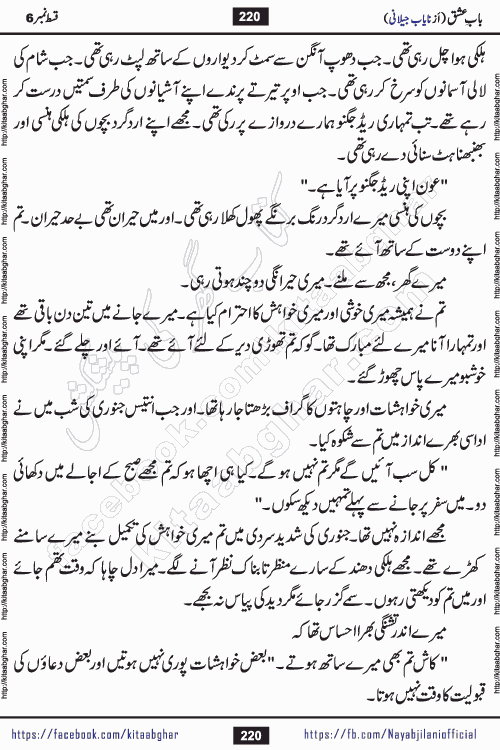 باب عشق (از نایاب جیلانی) 220 قسط نمبر 6
ہلکی ہوا چل رہی تھی۔ جب دھوپ آنگن سے سمٹ کر دیواروں کے ساتھ لپٹ رہی تھی۔ جب شام کی
لالی آسمانوں کو سرخ کر رہی تھی۔ جب اوپر تیرتے پرندے اپنے آشیانوں کی طرف سمتیں درست کر
رہے تھے۔ تب تمہاری ریڈ جگنو ہمارے دروازے پر رکی تھی۔ مجھے اپنے اردگرد بچوں کی ہلکی ہنسی اور
بھنبھناہٹ سنائی دے رہی تھی۔
"عون اپنی ریڈ جگنو پر آیا ہے۔"
بچوں کی ہنسی میرے اردگرد رنگ برنگے پھول کھلا رہی تھی۔ اور میں حیران تھی بے حد حیران۔ تم
اپنے دوست کے ساتھ آئے تھے۔
میرے گھر، مجھ سے ملنے۔ میری حیرانگی دو چند ہوتی رہی۔
تم نے ہمیشہ میری خوشی اور میری خواہش کا احترام کیا ہے۔ میرے جانے میں تین دن باقی تھے
اور تمہارا آنا میرے لئے مبارک تھا۔ گو کہ تم تھوڑی دیر کے لئے آئے تھے۔ آئے اور چلے گئے۔ مگر اپنی
خوشبو میرے پاس چھوڑ گئے۔
میری خواہشات اور چاہتوں کا گراف بڑھتا جا رہا تھا۔ اور جب انتیس جنوری کی شب میں نے
اداسی بھرے انداز میں تم سے شکوہ کیا۔
" کل سب آئیں گے مگر تم نہیں ہو گے۔ کیا ہی اچھا ہو کہ تم مجھے صبح کے اجالے میں دکھائی
دو۔ میں سفر پر جانے سے پہلے تمہیں دیکھ سکوں۔"
مجھے اندازہ نہیں تھا۔ جنوری کی شدید سردی میں تم میری خواہش کی تکمیل بنے میرے سامنے
کھڑے تھے۔ مجھے ہلکی دھند کے سارے منظر تابناک نظر آنے لگے۔ میرا دل چاہا کہ وقت تھم جائے
اور میں تم کو دیکھتی رہوں۔ سمے گزر جائے مگر دید کی پیاس نہ بجھے۔
میرے اندر تشنگی بھرا احساس تھا کہ
" کاش تم بھی میرے ساتھ ہوتے۔" بعض خواہشات پوری نہیں ہوتیں اور بعض دعاؤں کی
قبولیت کا وقت نہیں ہوتا۔
https://facebook.com/kitaabghar 220 https://fb.com/Nayabjilaniofficial
http://kitaabghar.com
کتاب گھر کی پیشکش
facebook.com/kitaabghar
kitaabghar.com